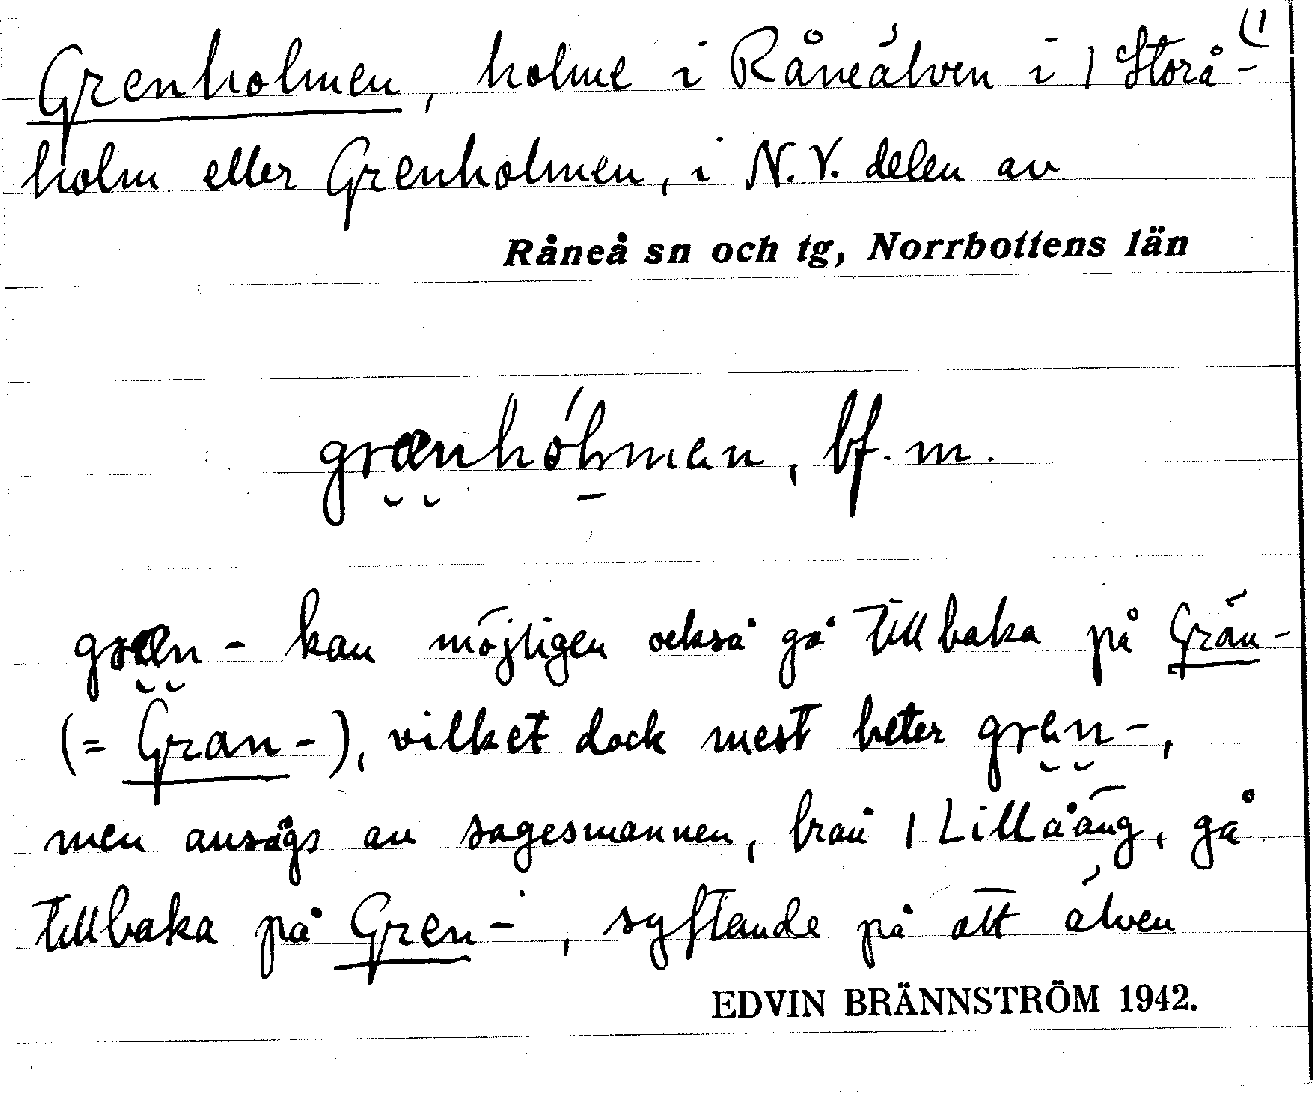 (1
Grenholmen, holme i Råneälven i 1 Storå-
holm eller Grenholmen, i N.V. delen av
Råneå sn och tg, Norrbottens län
grænhólman, bf. m.
græn- kan möjligen också gå tillbaka på Grän-
(= Gran-), vilket dock mest heter gren-,
men ansågs av sagesmannen, från 1 Lillåäng, gå
tillbaka på Gren-, syftande på att älven
EDVIN BRÄNNSTRÖM 1942.